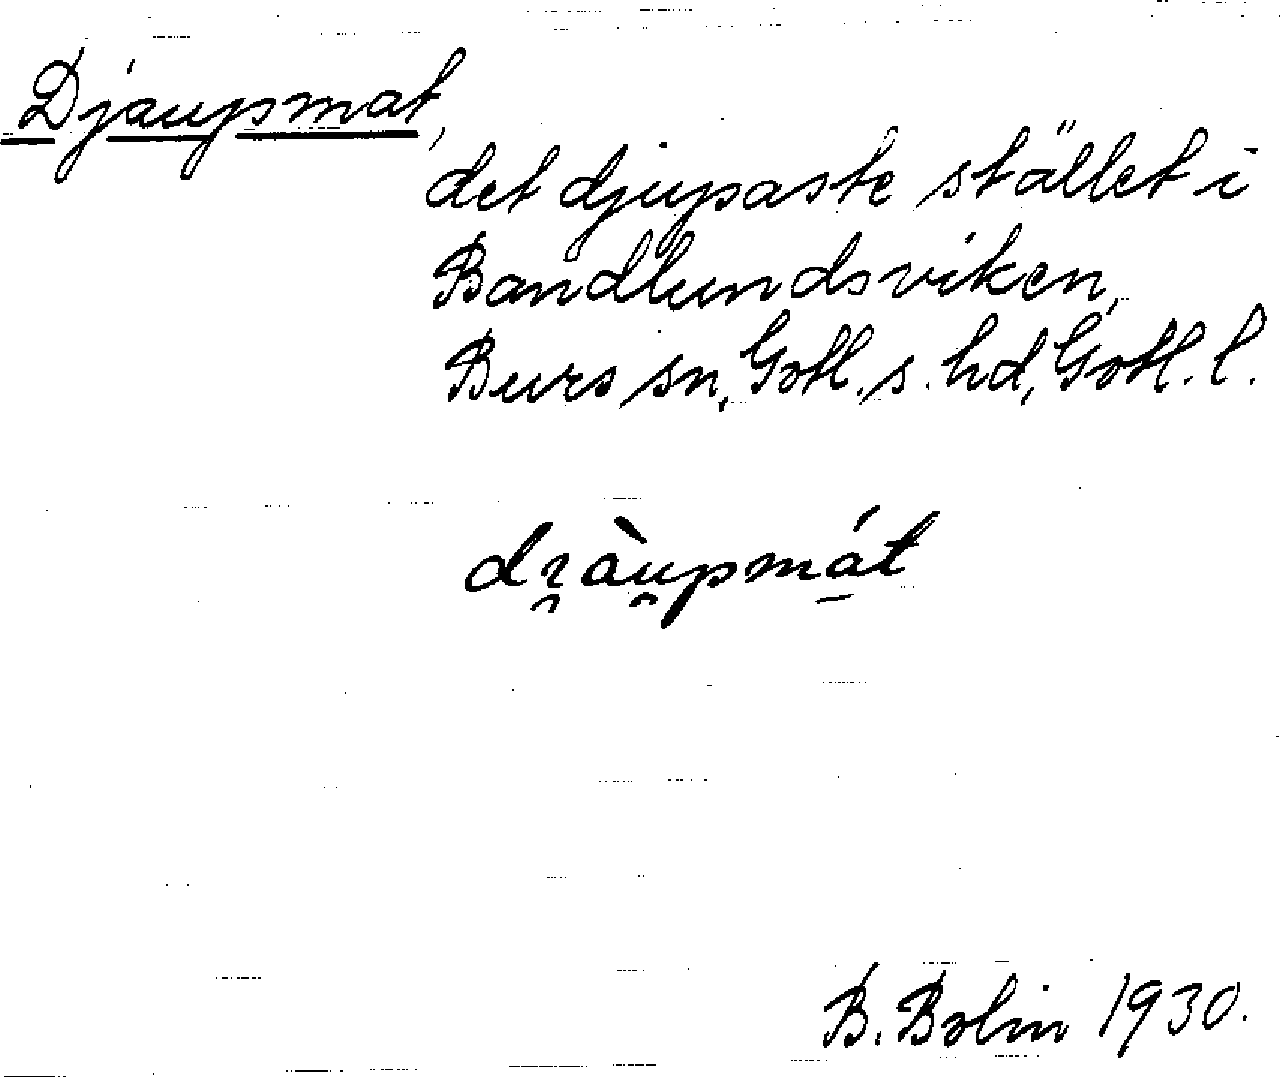 Djaupsmat,
det djupaste stället i
Bandlundsviken,
Burs sn, Gotl. s. hd, Gotl. l.
B. Bolin 1930.